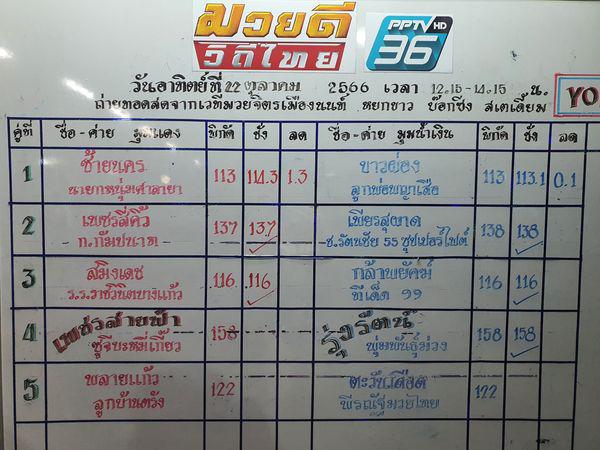 มวยดี
วิถีไทย
PPTV HD
36
วันอาทิตย์ที่ 22 ตุลาคม 2566 เวลา 12.15-14.15 น.
ถ่ายทอดสดจากเวทีมวยจิตรเมืองนนท์ หยกขาว บ๊อกซิ่ง สเตเดี้ยม
YO
คู่ที่ ชื่อ-ค่าย มุมแดง พิกัด ชั่ง ลด ชื่อ-ค่าย มุมน้ำเงิน พิกัด ชั่ง ลด
1 ซ้ายนคร 113 114.3 1.3 ขาวผ่อง 113 113.1 0.1
นายกหนุ่มศาลายา ลูกพ่อพญาเสือ
2 เพชรสีคิ้ว 137 137 เพียรสุขาด 138 138
ก.กัมปนาท ช.รัตนชัย 55 ซุปเปอร์ไฟต์
3 สมิงเดช 116 116 กล้าพยัคฆ์ 116 116
ร.ร.ราชวินิตบางแก้ว ทีเด็ด 99
4 เพชรสายฟ้า 158 รุ่งรัตน์ 158 158
ซูจีบะหมี่เกี๊ยว พุ่มพันธุ์ม่วง
5 พลายแก้ว 122 ตะวันเดือด 122
ลูกบ้านตรัง พีรณัฐมวยไทย